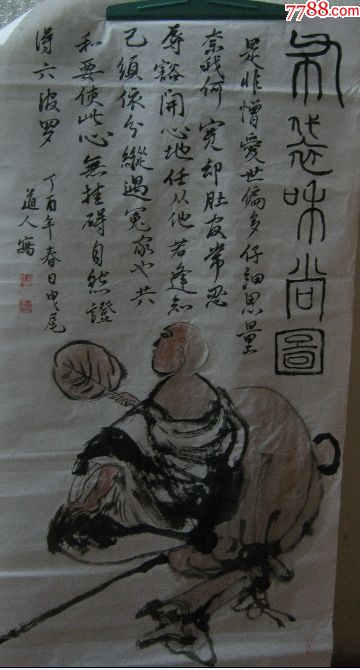 7788.com
布袋和尚圖
是非憎愛世偏多仔細思量
柰我何寬却肚皮常忍
辱豁開心地任從他若逢知
己須依分縱遇冤家也共
和要使此心無挂碍自然證
得六波罗
丁酉年春日曳尾
道人寫
7788.com